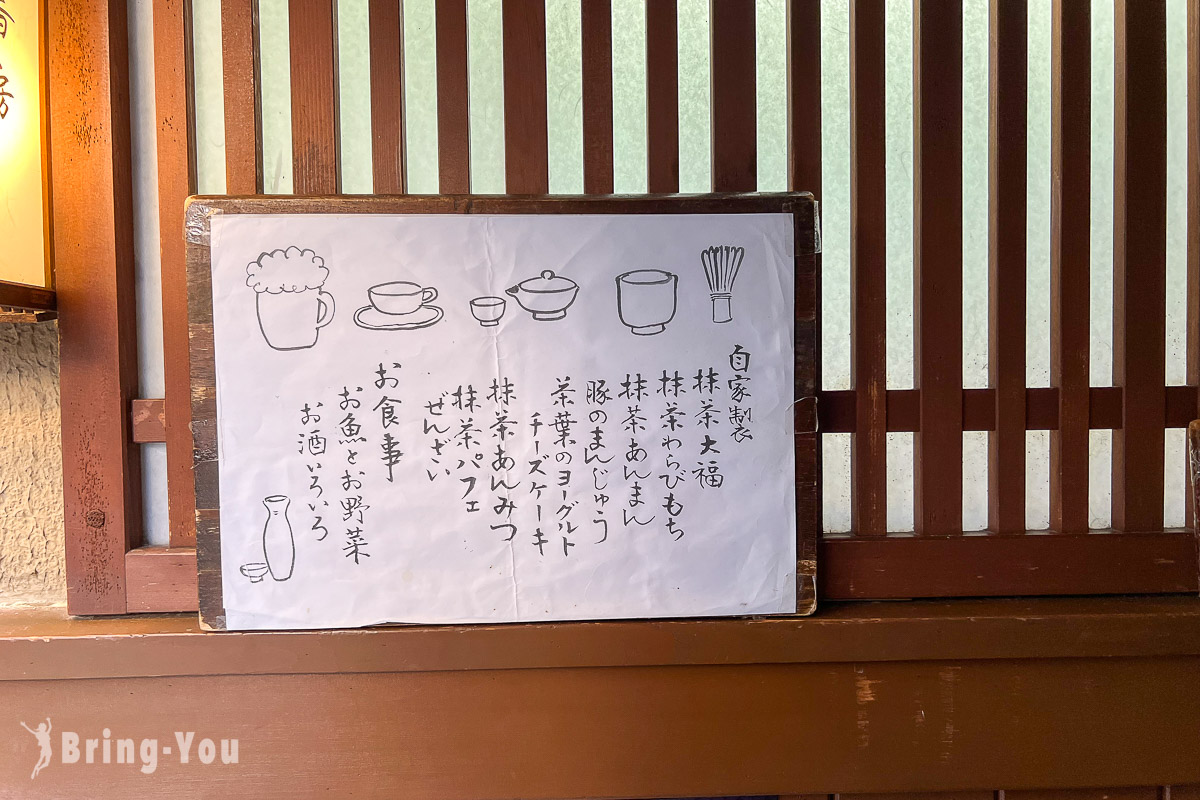 自家製
抹茶大福
抹茶わらびもち
抹茶あんまん
豚のまんじゅう
茶葉のヨーグルト
チーズケーキ
抹茶あんみつ
抹茶パフェ
ぜんざい
お食事
お魚とお野菜
お酒いろいろ
房
Bring-You